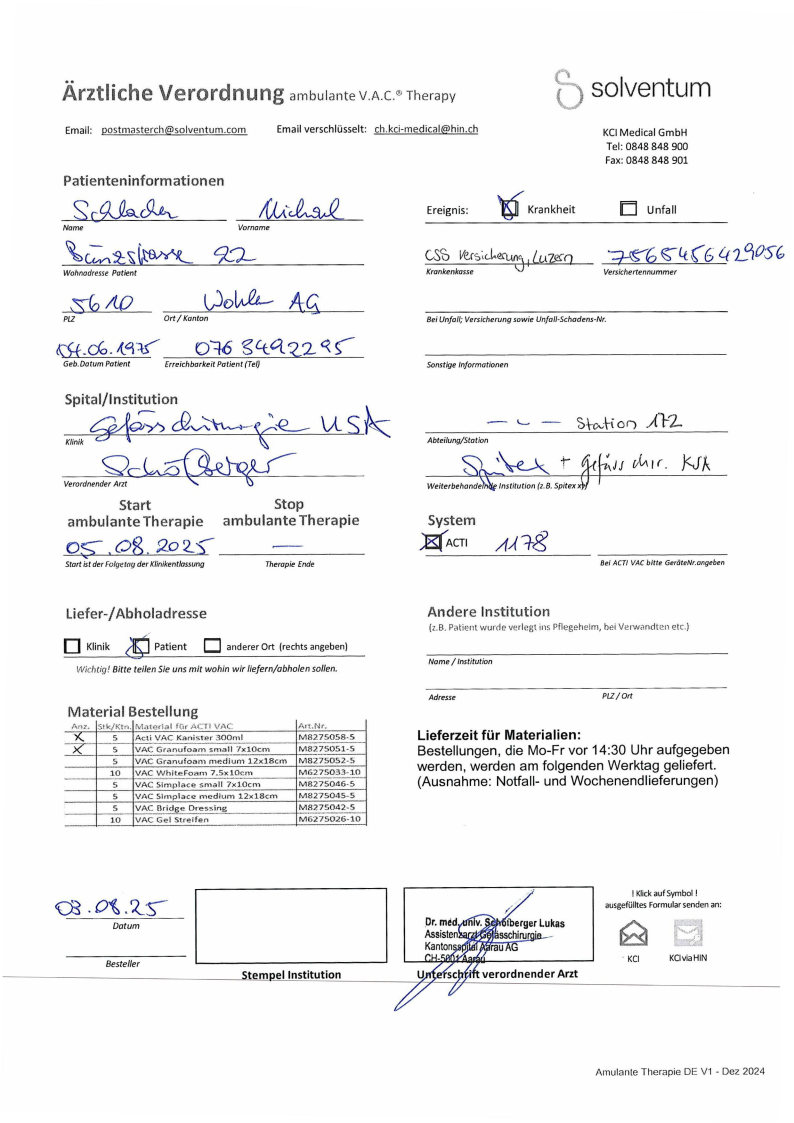 Ärztliche Verordnung ambulante V.A.C.® Therapy
solventum
Email: postmasterch@solventum.com Email verschlüsselt: ch.kci-medical@hin.ch
KCI Medical GmbH
Tel: 0848 848 900
Fax: 0848 848 901
Patienteninformationen
Schlacher Michael
Name Vorname
Ereignis: Krankheit Unfall
Bünzstrasse 22
Wohnadresse Patient
CSS Versicherung, Luzern 7568456429056
Krankenkasse Versichertennummer
5610 Wohlen AG
PLZ Ort / Kanton
Bei Unfall; Versicherung sowie Unfall-Schadens-Nr.
04.06.1975 076 3492295
Geb.Datum Patient Erreichbarkeit Patient (Tel)
Sonstige Informationen
Spital/Institution
Gefässchirurgie
Klinik
Station 172
Abteilung/Station
Schölberger
Verordnender Arzt
Spitex + gefäss chir. KSA
Weiterbehandelnde Institution (z.B. Spitex xy)
Start Stop
ambulante Therapie ambulante Therapie
05.08.2025 —
Start ist der Folgetag der Klinikentlassung Therapie Ende
System
ACTI 1178
Bei ACTI VAC bitte GeräteNr.angeben
Liefer-/Abholadresse
Klinik Patient anderer Ort (rechts angeben)
Wichtig! Bitte teilen Sie uns mit wohin wir liefern/abholen sollen.
Andere Institution
(z.B. Patient wurde verlegt ins Pflegeheim, bei Verwandten etc.)
Name / Institution
Adresse PLZ / Ort
Material Bestellung
Anz. Stk/Ktn. Material für ACTI VAC Art.Nr.
X 5 Acti VAC Kanister 300ml M8275058-5
X 5 VAC Granufoam small 7x10cm M8275051-5
5 VAC Granufoam medium 12x18cm M8275052-5
10 VAC WhiteFoam 7.5x10cm M6275033-10
5 VAC Simplace small 7x10cm M8275046-5
5 VAC Simplace medium 12x18cm M8275045-5
5 VAC Bridge Dressing M8275042-5
10 VAC Gel Streifen M6275026-10
Lieferzeit für Materialien:
Bestellungen, die Mo-Fr vor 14:30 Uhr aufgegeben
werden, werden am folgenden Werktag geliefert.
(Ausnahme: Notfall- und Wochenendlieferungen)
03.08.25
Datum
Besteller
Stempel Institution
Dr. med. univ. Schölberger Lukas
Assistenzarzt Gefässchirurgie
Kantonsspital Aarau AG
CH-5001 Aarau
Unterschrift verordnender Arzt
! Klick auf Symbol !
ausgefülltes Formular senden an:
KCI KCI via HIN
Amulante Therapie DE V1 - Dez 2024